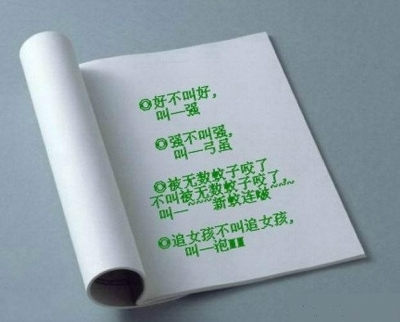 ◎好不叫好,
叫—强
◎强不叫强,
叫—弓虽
◎被无数蚊子咬了
不叫被无数蚊子咬了,~~~
叫—~~~新蚊连啵
◎追女孩不叫追女孩,
叫—泡MM